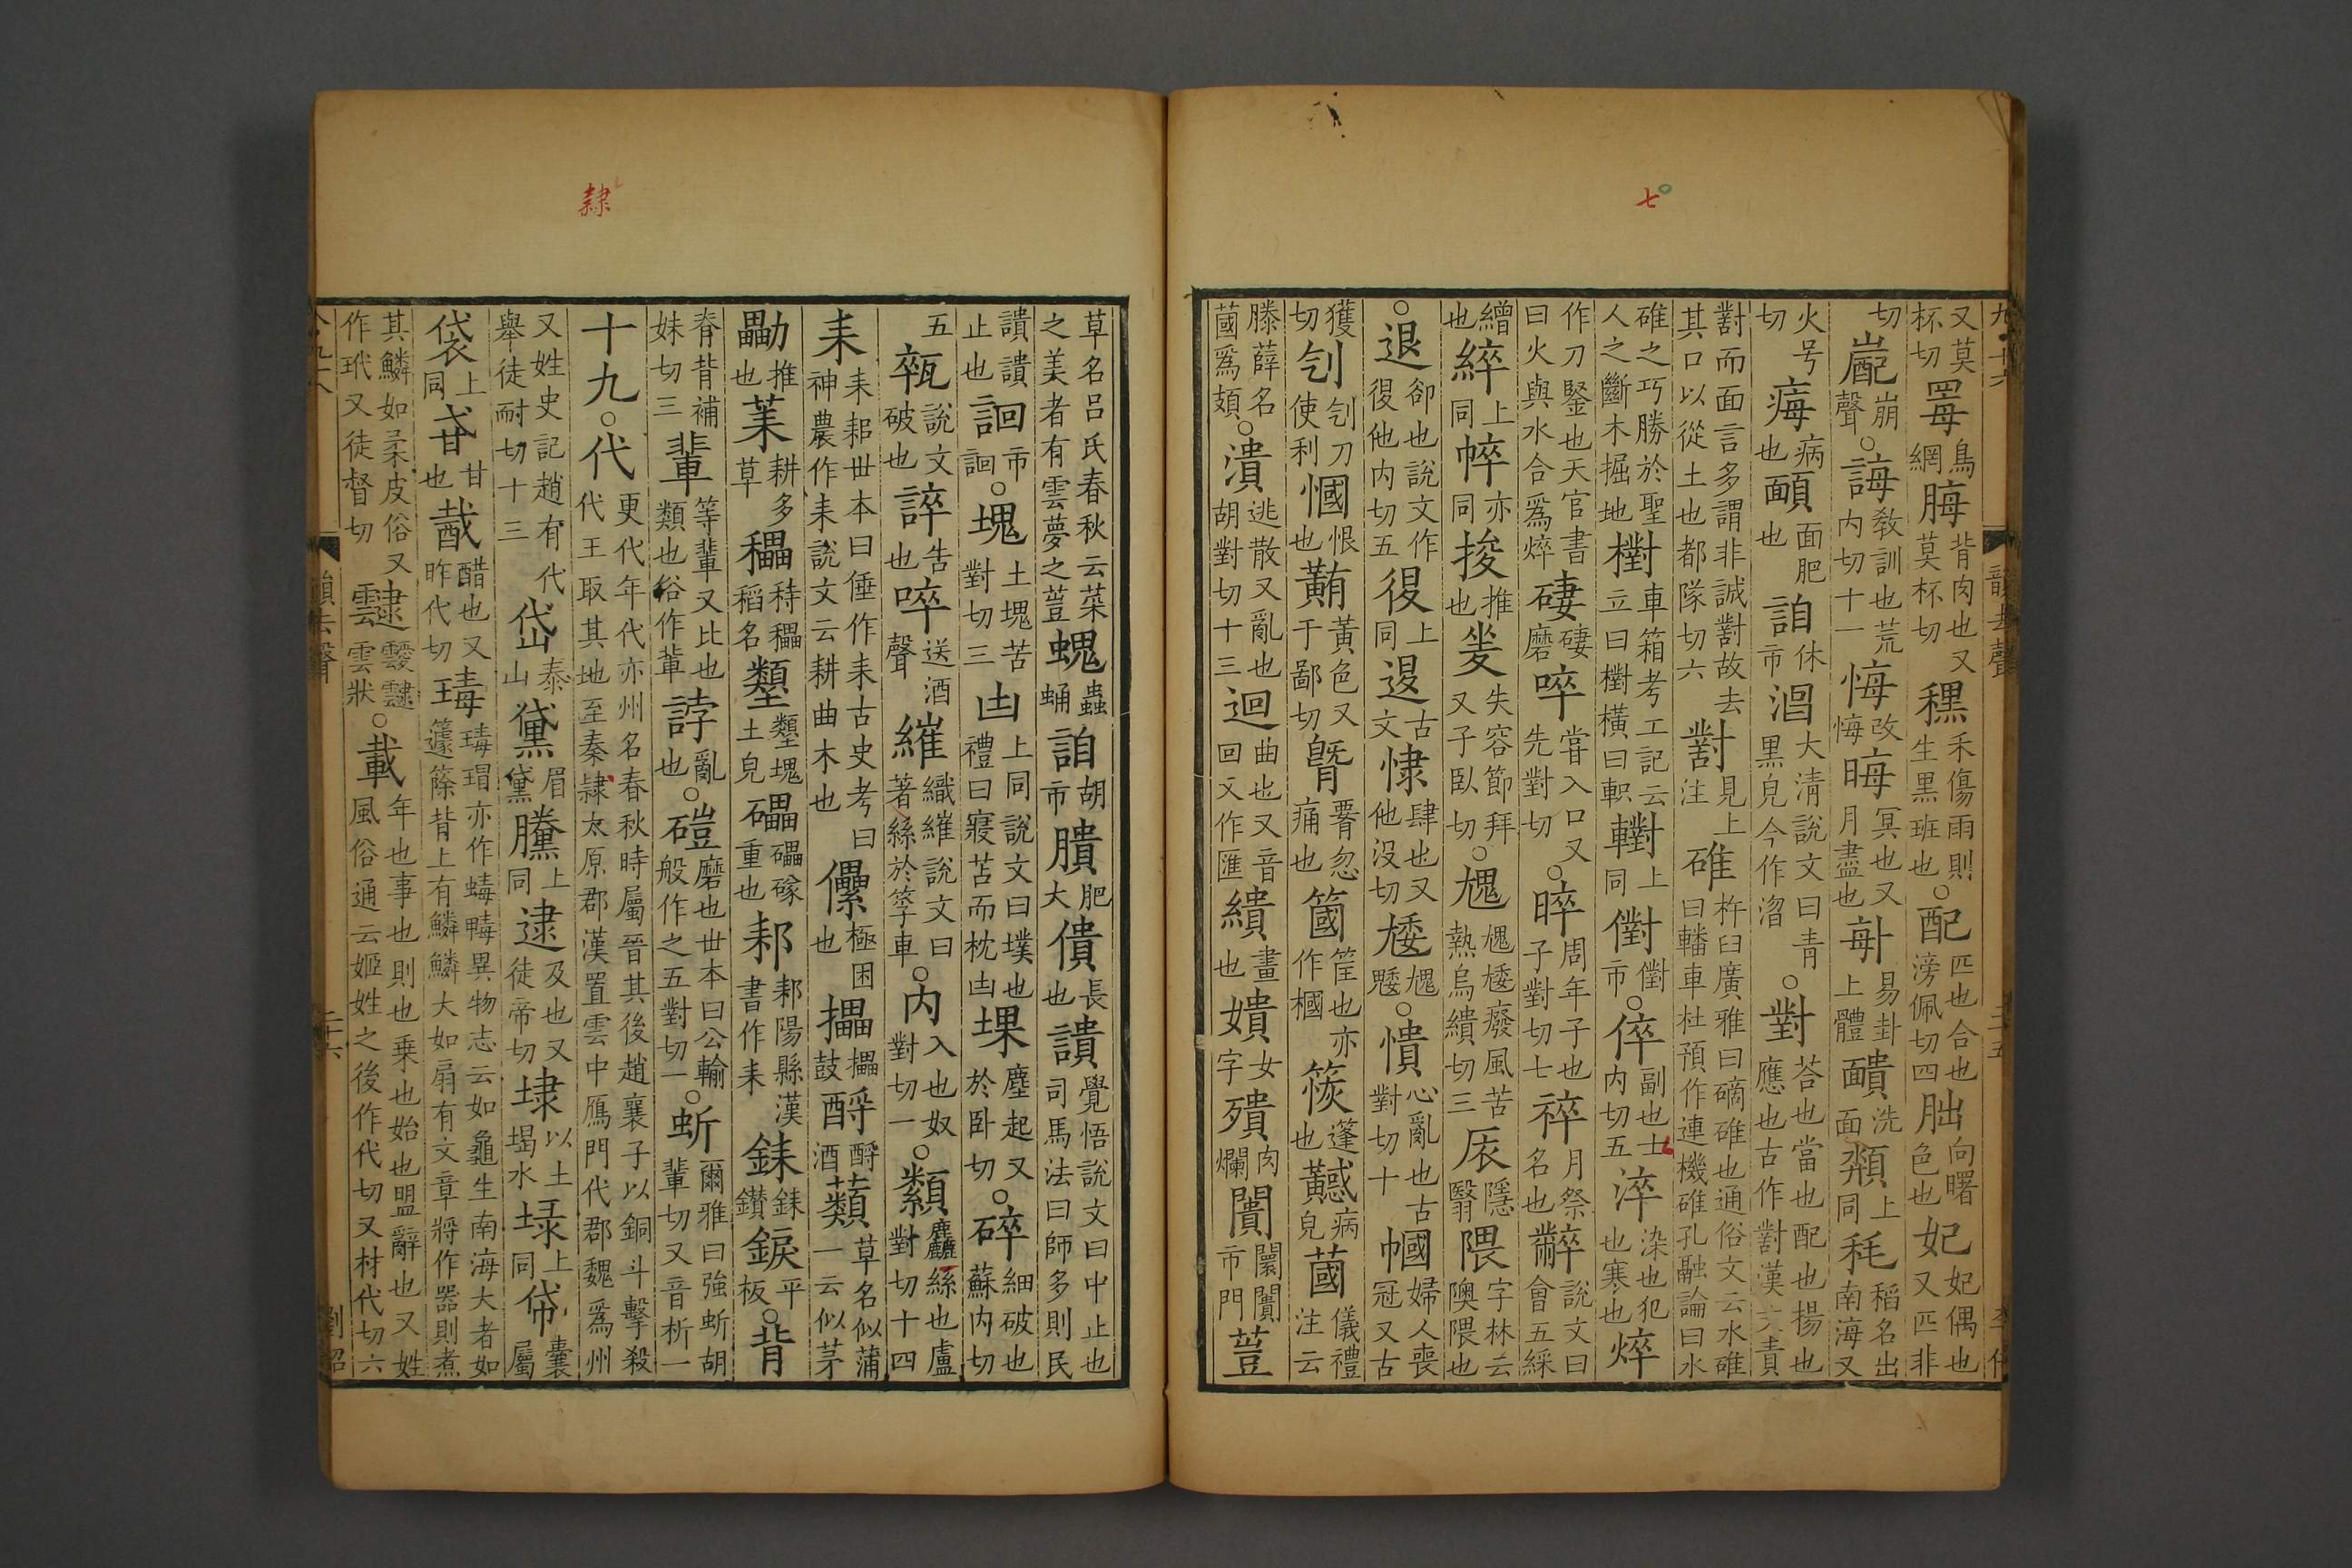 七
又莫杯切 𦋡 鳥網 脢 背肉也又莫杯切 䆀 禾傷雨則生黑班也○配 匹也合也滂佩切四 朏 向曙色也 妃 妃偶也又匹非
切 嶏 崩聲○誨 教訓也荒内切十一 悔 改悔 晦 冥也又月盡也 𠧩 易卦上體 靧 洗面 頮 上同 䊈 稻名出南海又
火号切 痗 病也 䩈 面肥也 詯 休市 㵽 大清說文曰青黑皃今作淴○對 荅也當也配也揚也應也古作對漢文責
對而面言多謂非誠對故去其口以從土也都隊切六 對 見上注 碓 杵臼廣雅曰碻碓也通俗文云水碓曰轓車杜預作連機碓孔融論曰水
碓之巧勝於聖人之斷木掘地 𣝉 車箱考工記云立曰𣝉橫曰軹 轛 上同 㒑 㒑市○倅 副也士内切五 淬 染也犯也寒也 焠
作刀鋻也天官書曰火與水合爲焠 䃚 䃚磨 啐 甞入口又先對切○晬 周年子也子對切七 祽 月祭名也 䊫 說文曰會五綵
繒也 綷 上同 㯿 亦同 捘 推也 夎 失容節拜又子臥切○䫥 䫥㾯癈風苦熱烏繢切三 㕒 隱翳 隈 字林云隩隈也
○退 卻也說文作復他内切五 復 上同 𨓤 古文 㥆 肆也又他没切 㾯 䫥㾯○憒 心亂也古對切十 幗 婦人喪冠又古
獲切 刉 刉刀使利 慖 恨也 䵋 黃色又于鄙切 㬪 𧟵忽痛也 簂 筐也亦作槶 䈐 篷也 𪏉 病皃 蔮 儀禮注云
滕薛名蔮爲頍○潰 逃散又亂也胡對切十三 迴 曲也又音回又作匯 繢 畫也 嬇 女字 殨 肉爛 闠 闤闠市門 䔇
草名吕氏春秋云菜之美者有雲夢之䔇 螝 蟲蛹 詯 胡市 膭 肥大 僓 長也 讃 覺悟說文曰中止也司馬法曰師多則民
讃讃止也 𧧯 市𧧯○塊 土塊苦對切三 凷 上同說文曰墣也禮曰寢苫而枕凷 堁 塵起又於臥切○碎 細破也蘇内切
五 𤮊 說文破也 誶 告也 啐 送酒聲 繀 織繀說文曰著絲於筟車○内 入也奴對切一○纇 麤絲也盧對切十四
耒 耒耜世本曰倕作耒古史考曰神農作耒說文云耕曲木也 儽 極困也 攂 攂鼓 酹 酹酒 蘱 草名似蒲一云似茅
勵 推也 莱 耕多草 䆀 䅔䆀稻名 壨 壨塊土皃 礧 礧硠重也 郲 郲陽縣漢書作耒 錸 錸鑽 錑 平板○背
脊背補妹切三 輩 等輩又比也類也俗作軰 誖 亂也○磑 磨也世本曰公輸般作之五對切一○蚚 爾雅曰強蚚胡輩切又音析一
十九○代 更代年代亦州名春秋時屬晉其後趙襄子以銅斗擊殺代王取其地至秦隸太原郡漢置雲中鴈門代郡魏爲州
又姓史記趙有代舉徒耐切十三 岱 泰山 黛 眉黛 騰 上同 逮 及也又徒帝切 埭 以土堨水 𡌆 上同 帒 囊屬
袋 上同 𤯷 甘也 䣧 醋也又昨代切 瑇 瑇瑁亦作蝳䵚異物志云如龜生南海大者如籧篨背上有鱗鱗大如扇有文章將作器則煮
其鱗如柔皮俗又作玳又徒督切 靆 靉靆雲狀○載 年也事也則也乗也始也盟辭也又姓風俗通云姬姓之後作代切又材代切六
隸